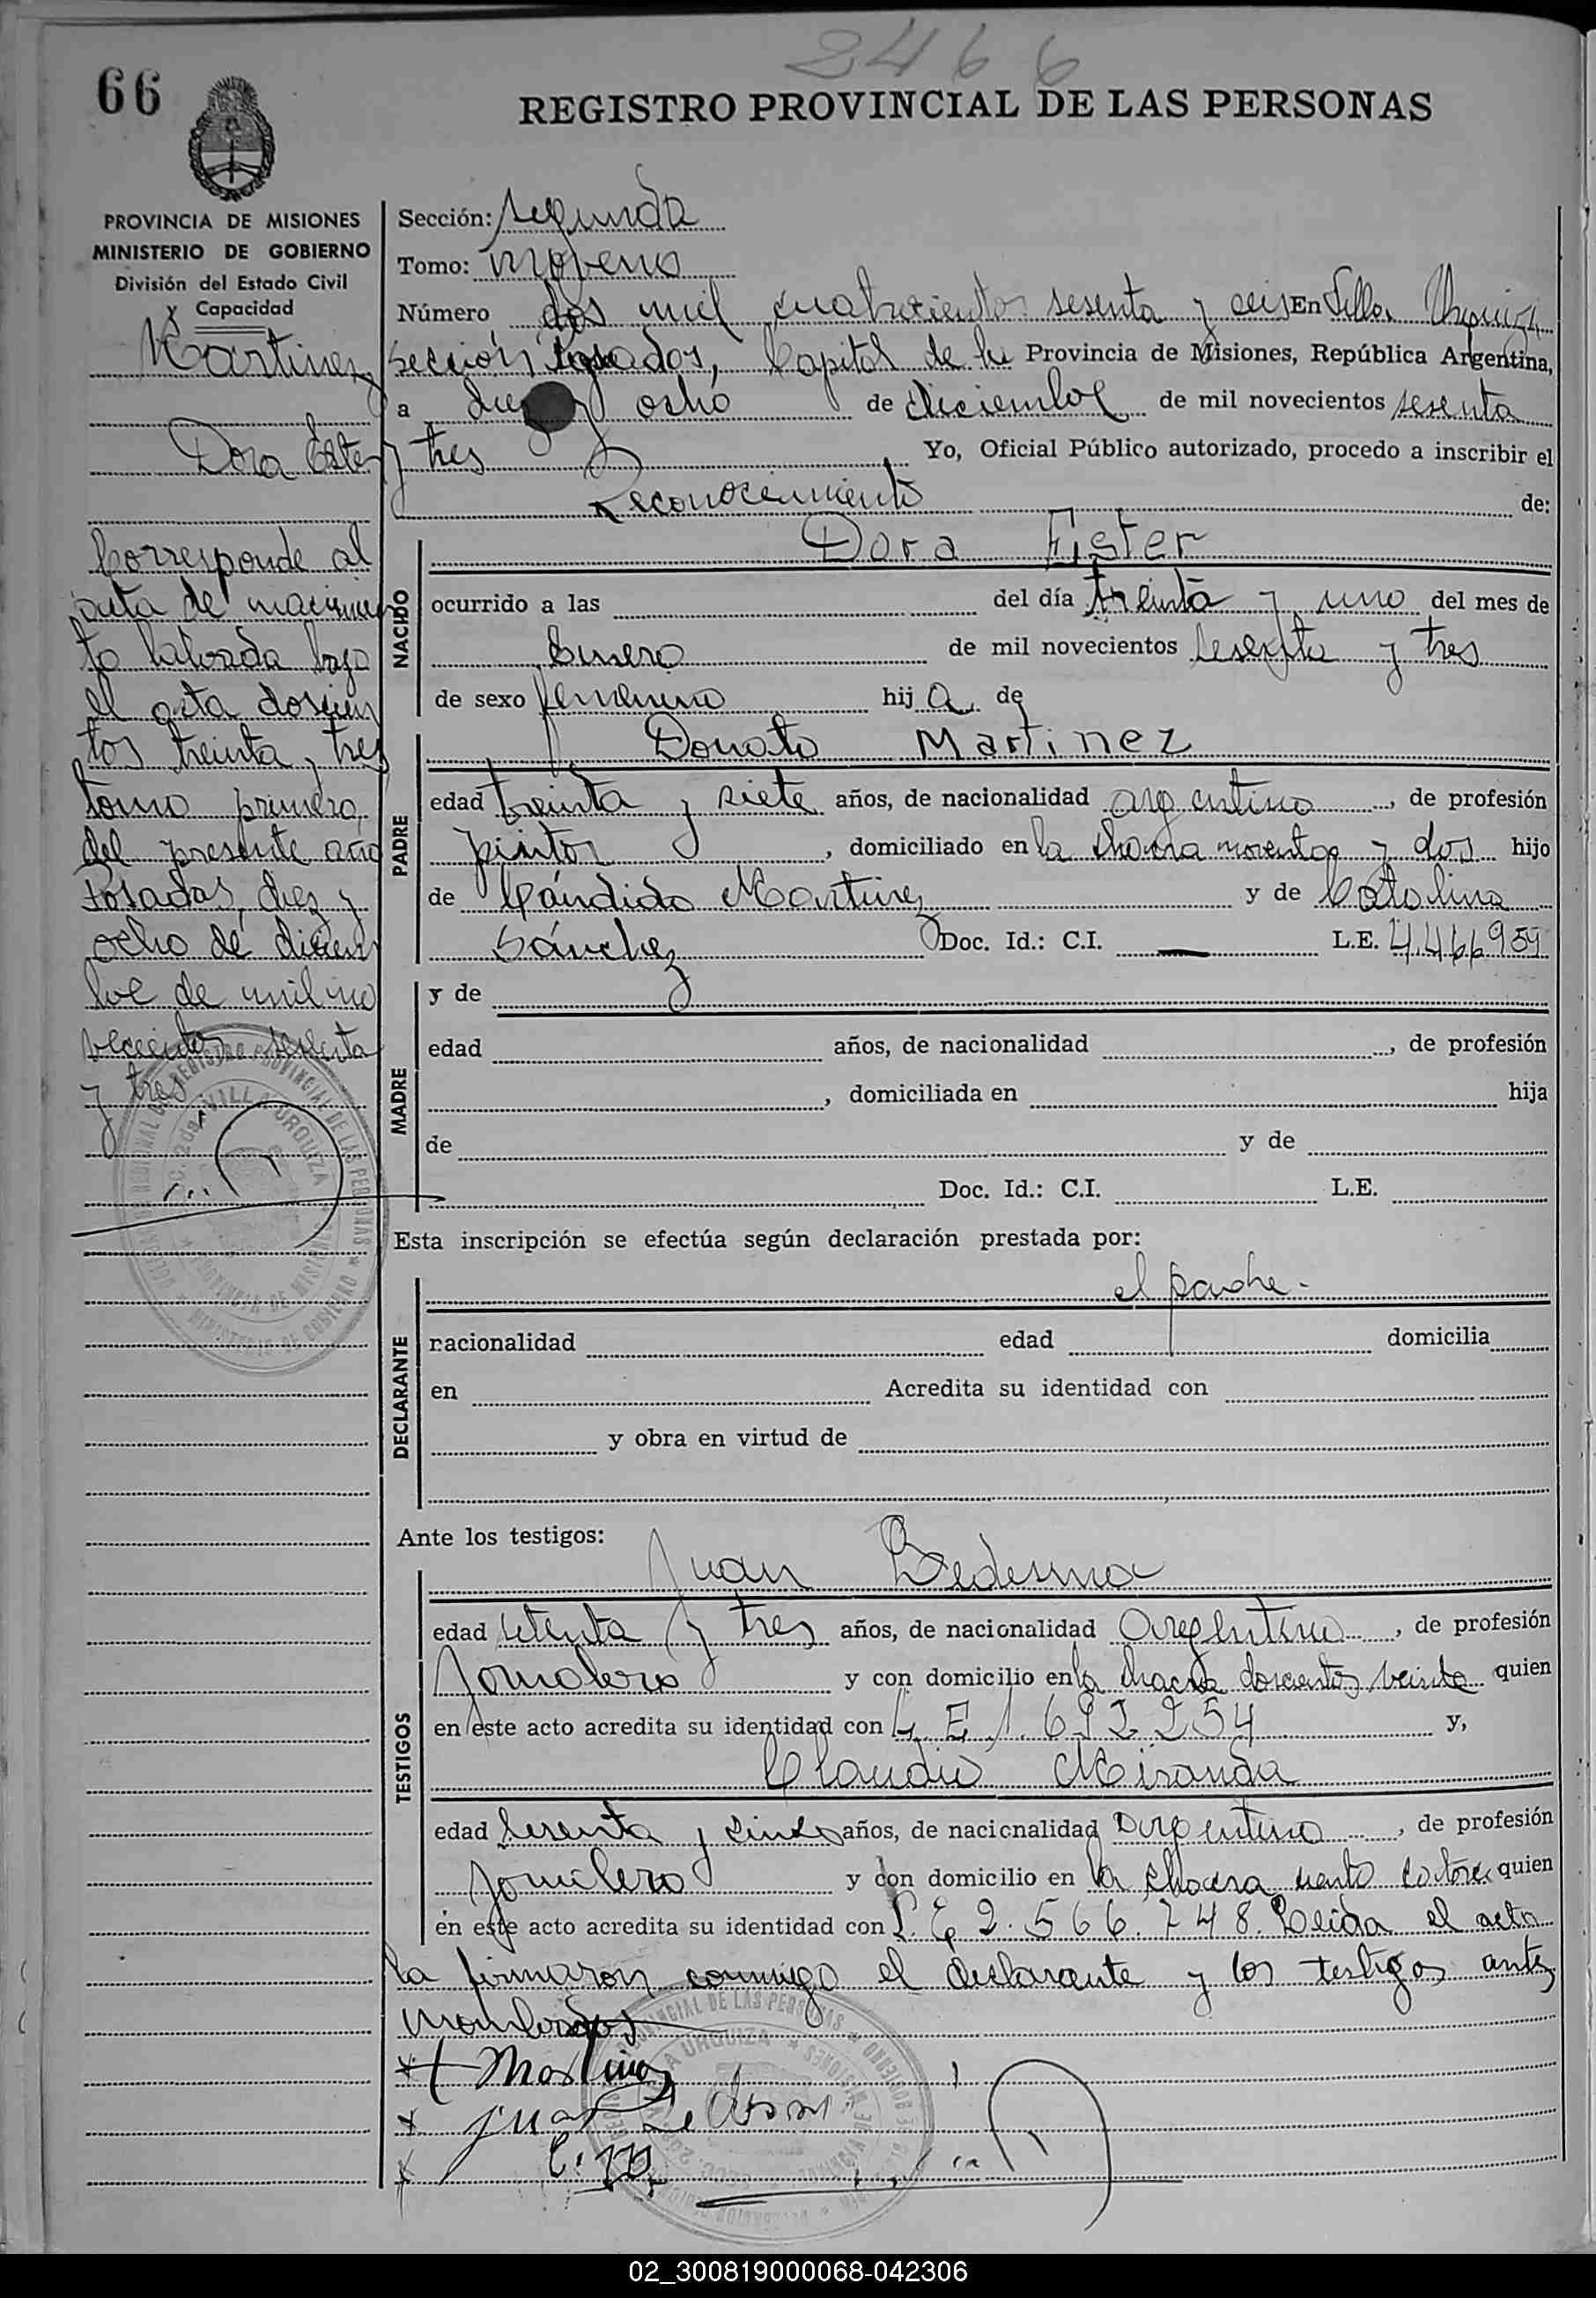 2466
66
REGISTRO PROVINCIAL DE LAS PERSONAS
PROVINCIA DE MISIONES
MINISTERIO DE GOBIERNO
División del Estado Civil
y Capacidad
Martinez
Dora Ester
Corresponde al
acta de nacimien
to labrada bajo
el acta doscien
tos treinta y tres
tomo primero
del presente año
Posadas, diez y
ocho de diciem
bre de mil no
vecientos sesenta
y tres
Sección: segunda
Tomo: noveno
Número dos mil cuatrocientos sesenta y seis En Villa Urquiza
sección Posadas, Capital de la Provincia de Misiones, República Argentina,
a diez y ocho de diciembre de mil novecientos sesenta
y tres Yo, Oficial Público autorizado, procedo a inscribir el
Reconocimiento de:
NACIDO
Dora Ester
ocurrido a las del día treinta y uno del mes de
Enero de mil novecientos sesenta y tres
de sexo femenino hij a de
PADRE
Donato Martinez
edad treinta y siete años, de nacionalidad argentino, de profesión
pintor, domiciliado en la chacra noventa y dos hijo
de Cándido Martinez y de Catalina
Sánchez Doc. Id.: C.I. — L.E. 4.466959
MADRE
y de
edad años, de nacionalidad , de profesión
, domiciliada en hija
de y de
Doc. Id.: C.I. L.E.
Esta inscripción se efectúa según declaración prestada por:
DECLARANTE
el padre.-
nacionalidad edad domicilia
en Acredita su identidad con
y obra en virtud de
Ante los testigos:
TESTIGOS
Juan Ledesma
edad setenta y tres años, de nacionalidad argentino, de profesión
Jornalero y con domicilio en la chacra doscientos veinte quien
en este acto acredita su identidad con L. E 1.692254 y,
Claudio Miranda
edad sesenta y cinco años, de nacionalidad argentino, de profesión
Jornalero y con domicilio en la chacra ciento catorce quien
en este acto acredita su identidad con L. E 2.566.748. Leida el acta
la firmaron conmigo el declarante y los testigos ante
nombrados
x Martinez
x juan Ledesm
x C. M
02_300819000068-042306